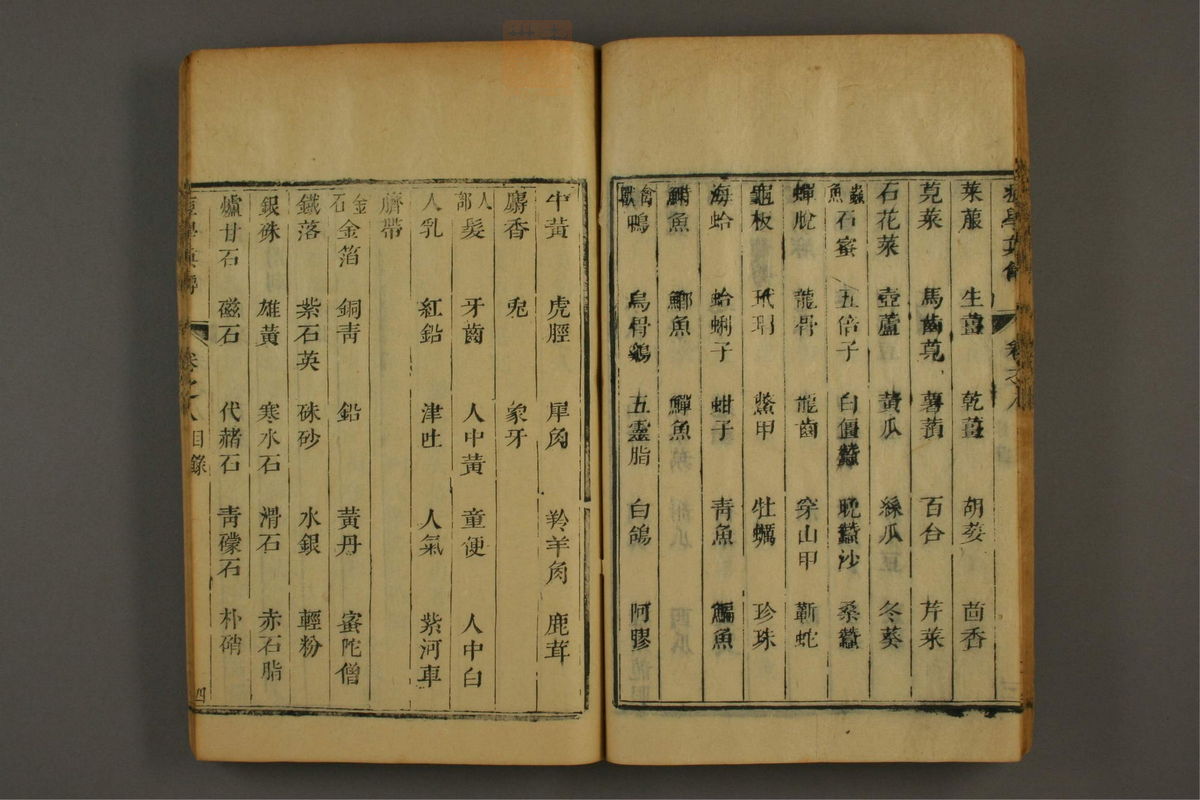 卷之八
萊菔 生薑 乾薑 胡荽 茴香
莧菜 馬齒莧 薯蕷 百合 芹菜
石花菜 壺蘆 黃瓜 絲瓜 冬葵
蟲魚 石蜜 五倍子 白僵蠶 晚蠶沙 桑蠶
蟬脫 龍骨 龍齒 穿山甲 蘄蛇
龜板 玳瑁 鱉甲 牡蠣 珍珠
海蛤 蛤蜊子 蚶子 青魚 鯿魚
鯽魚 鱓魚
禽獸 鴨 烏骨鷄 五靈脂 白鴿 阿膠
牛黃 虎脛 犀角 羚羊角 鹿茸
麝香 兔 象牙
人部 髮 牙齒 人中黃 童便 人中白
人乳 紅鉛 津吐 人氣 紫河車
臍帶
金石 金箔 銅青 鉛 黃丹 蜜陀僧
鐵落 紫石英 硃砂 水銀 輕粉
銀硃 雄黃 寒水石 滑石 赤石脂
爐甘石 磁石 代赭石 青礞石 朴硝
卷之八 目錄 四